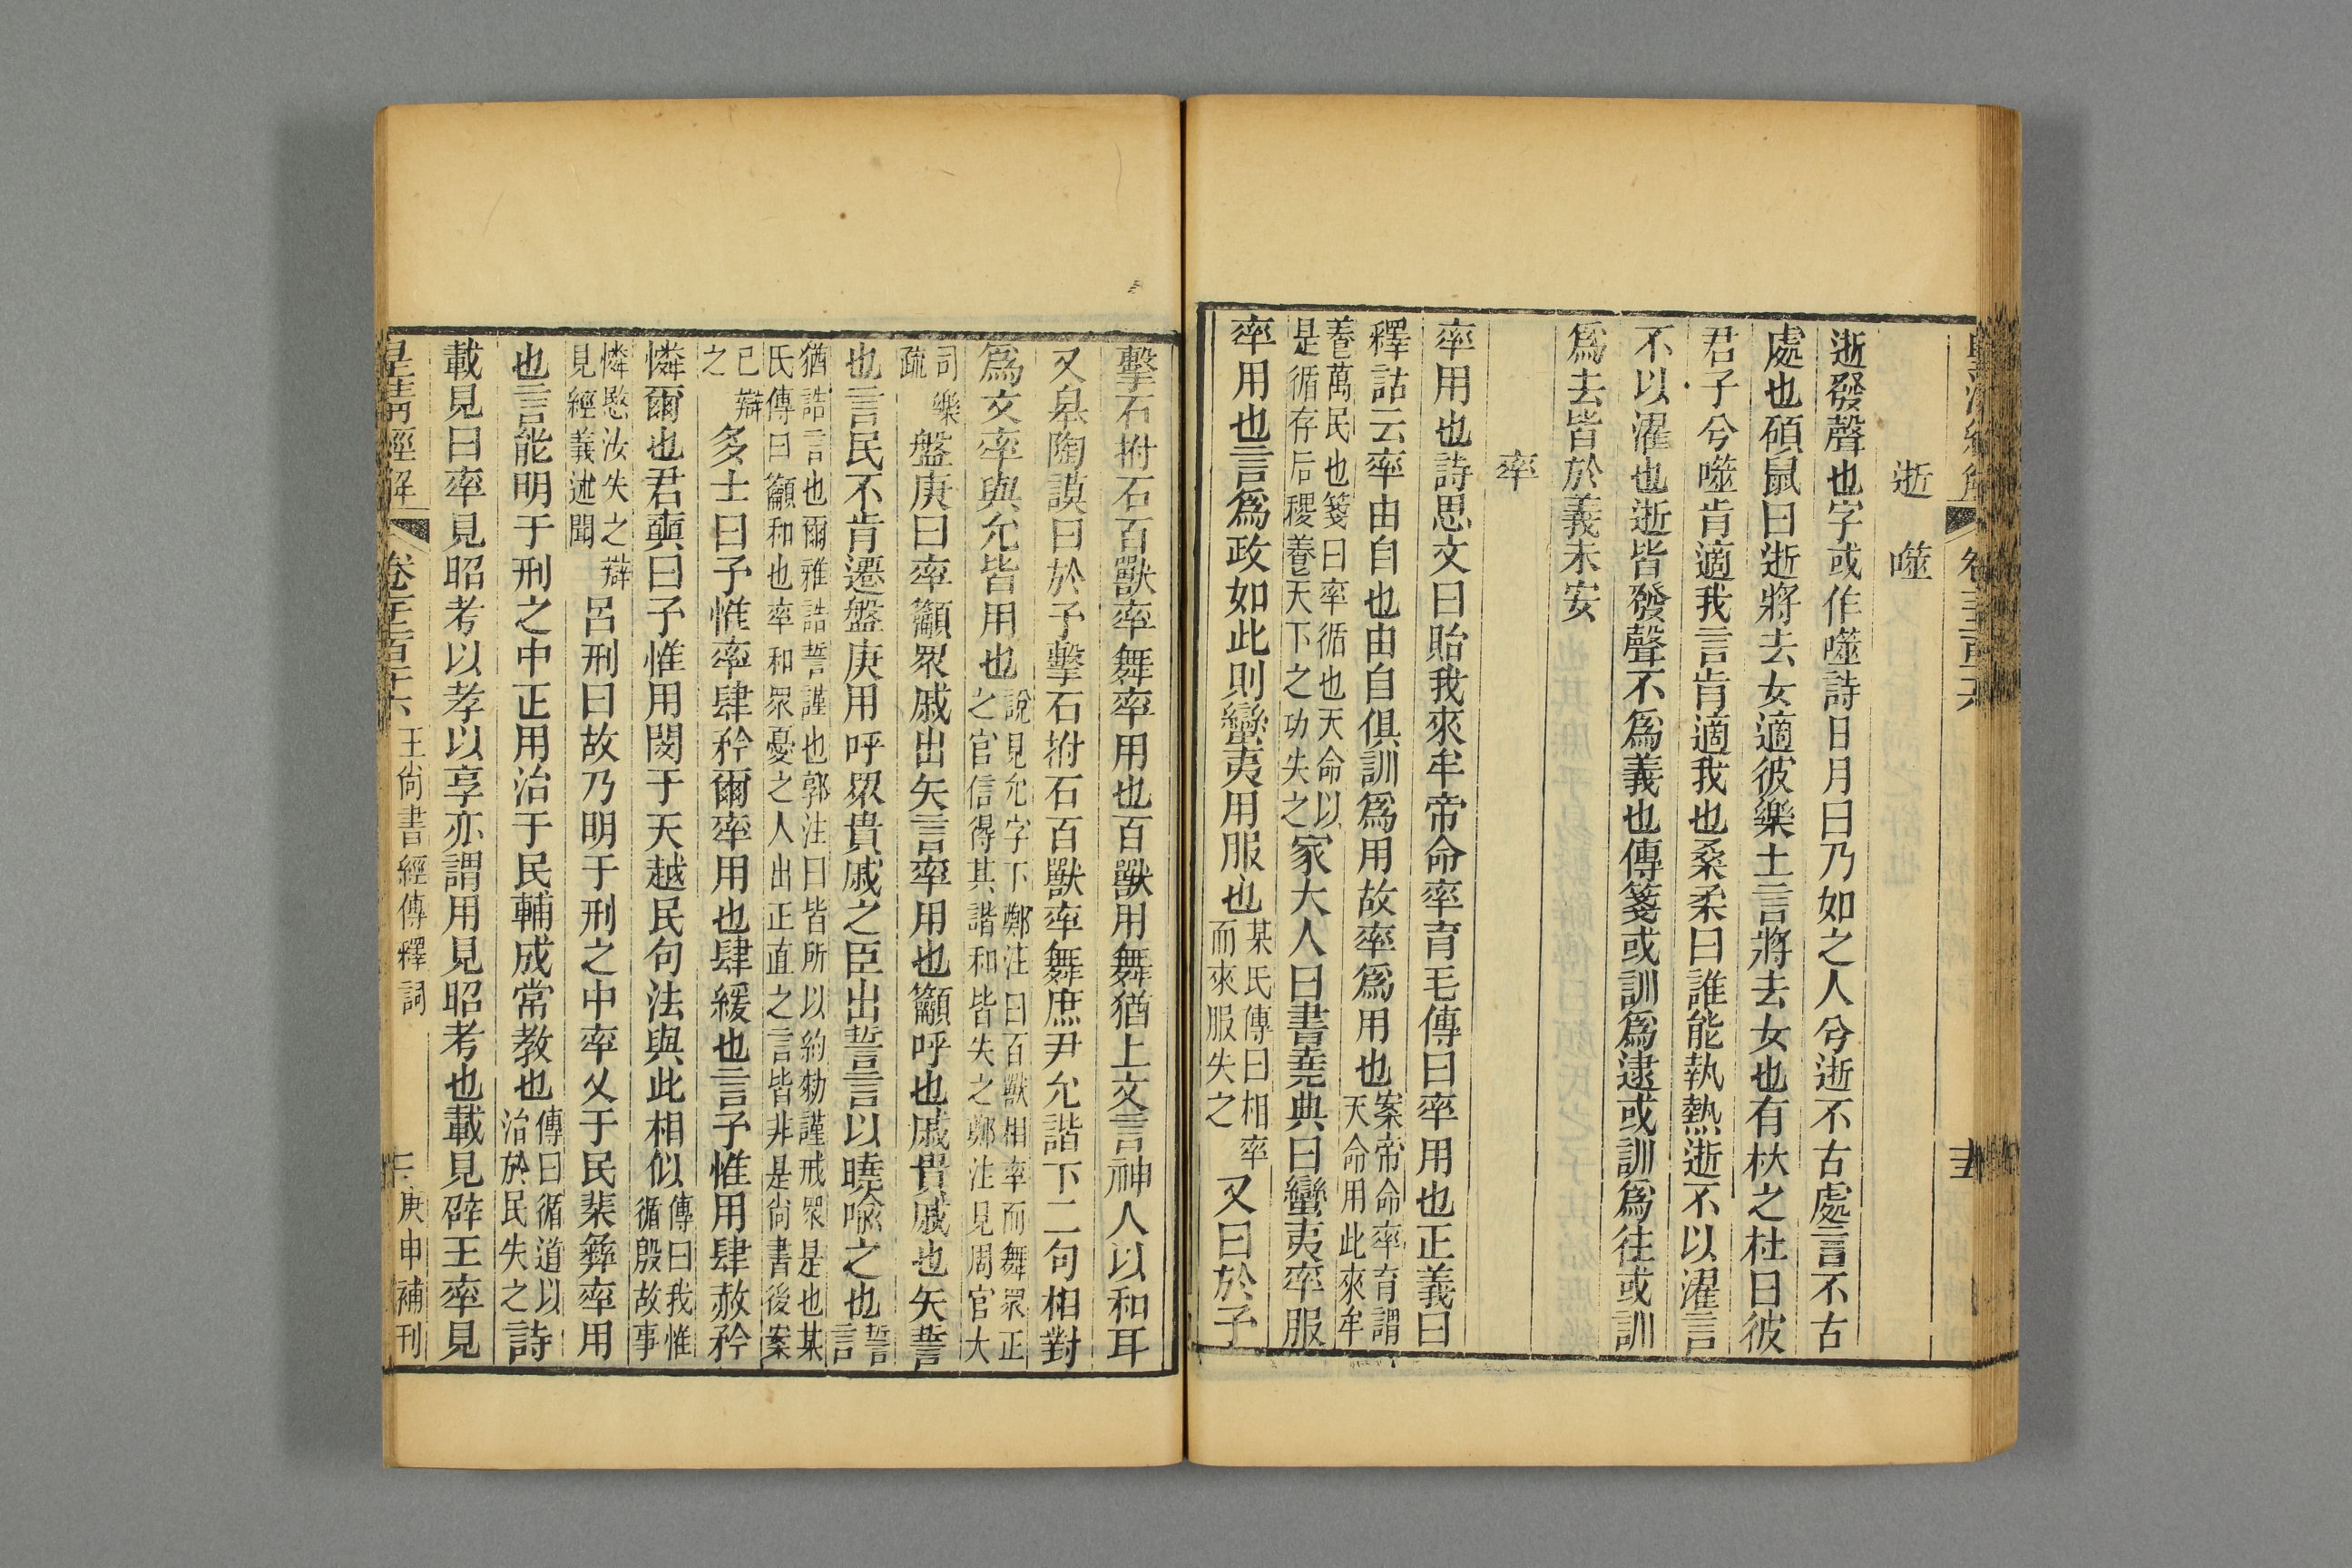 逝　噬
逝發聲也字或作噬詩日月曰乃如之人兮逝不古處言不古
處也碩鼠曰逝將去女適彼樂土言將去女也有杕之杜曰彼
君子兮噬肯適我言肯適我也桑柔曰誰能執熱逝不以濯言
不以濯也逝皆發聲不爲義也傳箋或訓爲逮或訓爲往或訓
爲去皆於義未安
率
率用也詩思文曰貽我來牟帝命率育毛傳曰率用也正義曰
釋詁云率由自也由自俱訓爲用故率爲用也案帝命率育謂
天命用此來牟
養萬民也箋曰率循也天命以
是循存后稷養天下之功失之家大人曰書堯典曰蠻夷率服
率用也言爲政如此則蠻夷用服也某氏傳曰相率
而來服失之又曰於予
擊石拊石百獸率舞率用也百獸用舞猶上文言神人以和耳
又皋陶謨曰於予擊石拊石百獸率舞庶尹允諧下二句相對
爲文率與允皆用也說見允字下鄭注曰百獸相率而舞眾正
之官信得其諧和皆失之鄭注見周官大
司樂
疏盤庚曰率籲眾戚出矢言率用也籲呼也戚貴戚也矢誓
也言民不肯遷盤庚用呼眾貴戚之臣出誓言以曉喻之也誓
言
猶誥言也爾雅誥誓謹也郭注曰皆所以約勑謹戒眾是也某
氏傳曰籲和也率和眾憂之人出正直之言皆非是尚書後案
已辯
之多士曰予惟率肆矜爾率用也肆緩也言予惟用肆赦矜
憐爾也君奭曰予惟用閔于天越民句法與此相似傳曰我惟
循殷故事
憐愍汝失之辯
見經義述聞呂刑曰故乃明于刑之中率乂于民棐彝率用
也言能明于刑之中正用治于民輔成常教也傳曰循道以
治於民失之詩
載見曰率見昭考以孝以享亦謂用見昭考也載見辟王率見
皇淸經解　卷千二百十六　王尚書經傳釋詞　庚申補刊